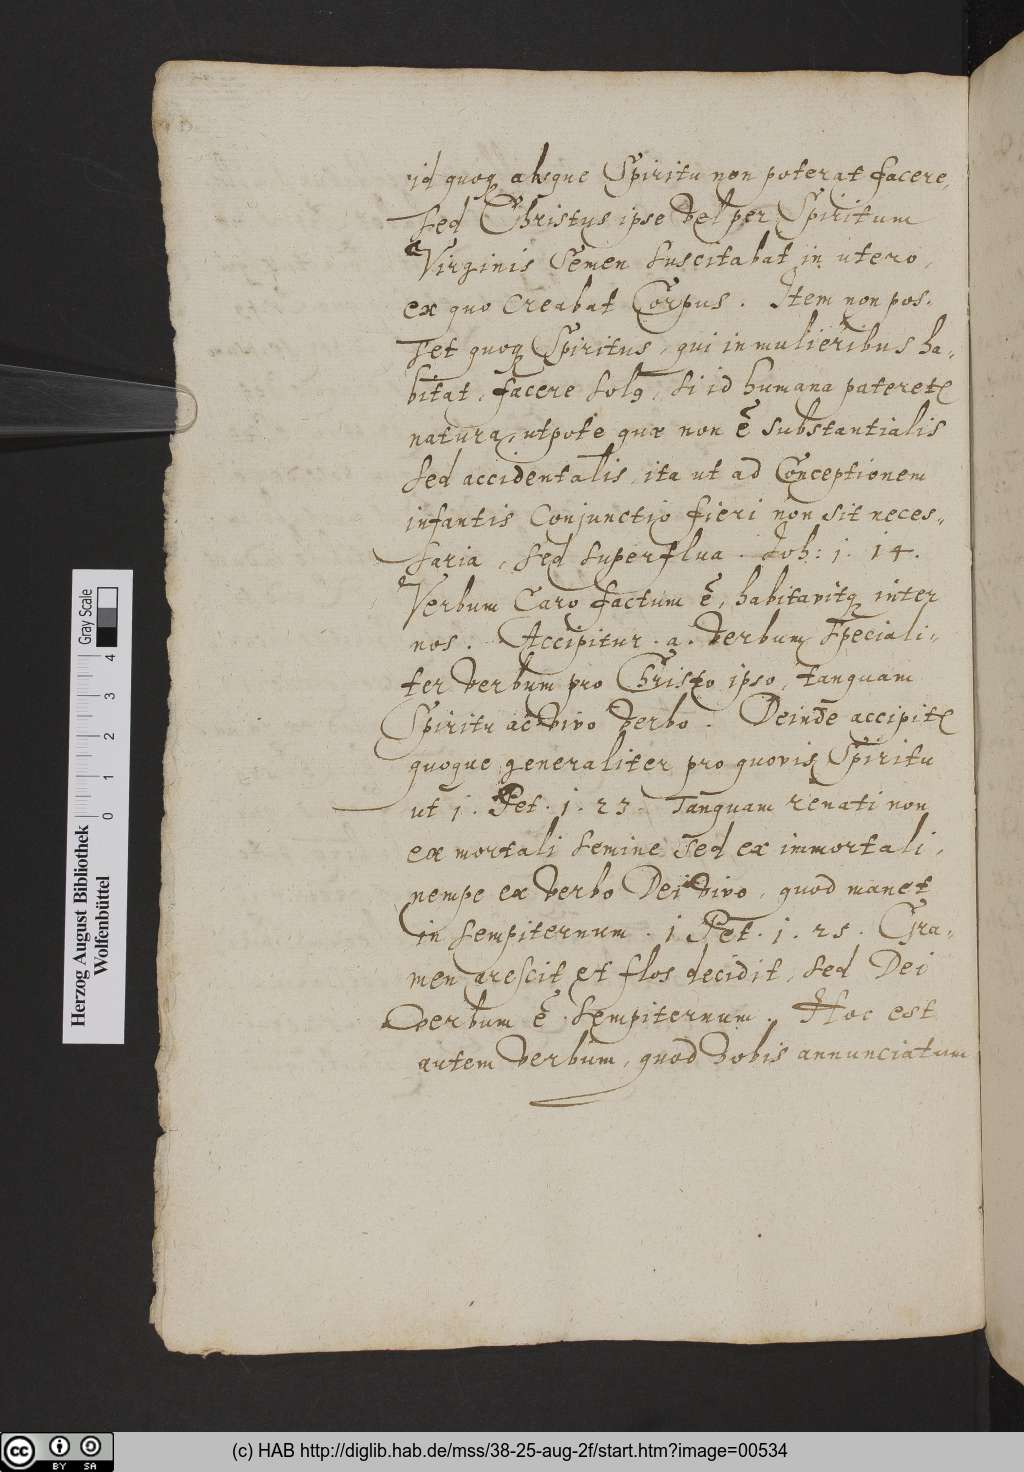 id quoq absque Spiritu non poterat facere,
sed Christus ipse vel per Spiritum
Virginis Semen suscitabat in utero,
ex quo creabat Corpus. Item non pos-
set quoq Spiritus, qui in mulieribus ha-
bitat, facere solq, si id humana pateretr
natura, utpote quæ non ē substantialis
sed accidentalis, ita ut ad Conceptionem
infantis Conjunctio fieri non sit neces-
saria, sed superflua. Joh: 1. 14.
Verbum Caro factum ē, habitavitq inter
nos. Accipitur .a. verbum speciali-
ter verbum pro Christo ipso, tanquam
Spiritu ac vivo verbo. Deinde accipitr
quoque generaliter pro quovis Spiritu
ut 1. Pet. 1. 23. Tanquam renati non
ex mortali semine sed ex immortali,
nempe ex verbo Dei vivo, quod manet
in sempiternum. 1 Pet. 1. 25. Gra-
men arescit et flos decidit, sed Dei
verbum ē sempiternum. Hoc est
autem verbum, quod vobis annunciatum
Herzog August Bibliothek
Wolfenbüttel
0 1 2 3 4
Gray Scale
(c) HAB http://diglib.hab.de/mss/38-25-aug-2f/start.htm?image=00534
cc BY SA